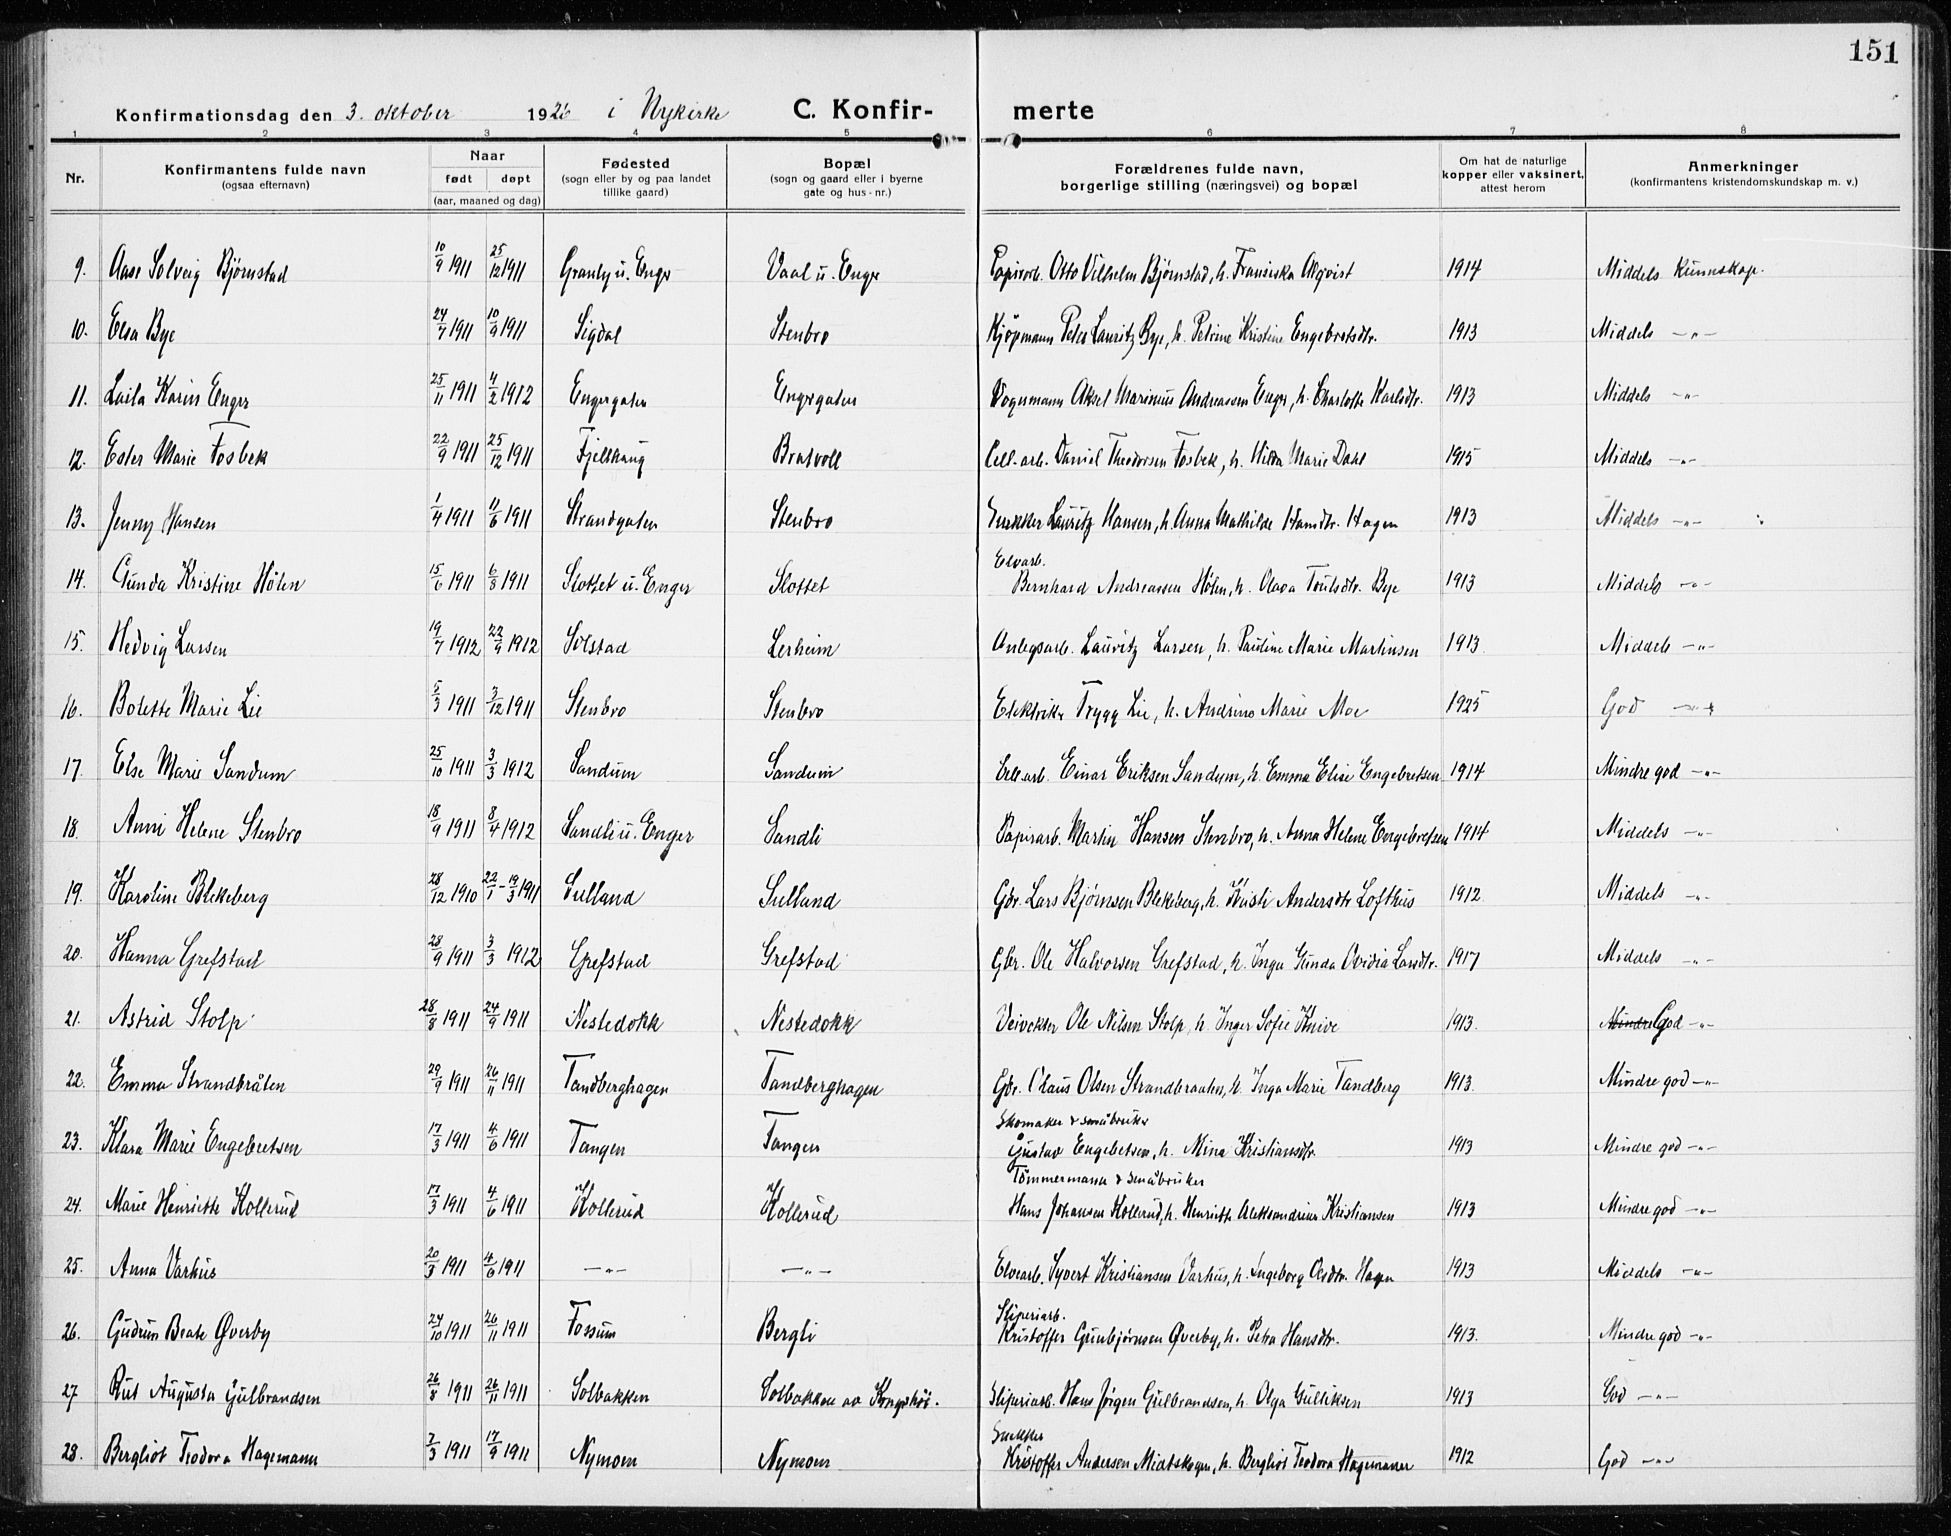 151
Konfirmationsdag den 3. oktober 1926 i Nykirke C. Konfir- merte
1 2 3 4 5 6 7 8
Nr. Konfirmantens fulde navn (ogsaa efternavn) Naar født døpt (aar, maaned og dag) Fødested (sogn eller by og paa landet tillike gaard) Bopæl (sogn og gaard eller i byerne gate og hus-nr.) Forældrenes fulde navn, borgerlige stilling (næringsvei) og bopæl Om hat de naturlige kopper eller vaksinert, attest herom Anmerkninger (konfirmantens kristendomskundskap m. v.)
9. Aase Solveig Bjørnstad 10/9 1911 25/12 1911 Granly u. Enger Vaal u. Enger Papirarb. Otto Vilhelm Bjørnstad, h. Fransiska Alqvist 1914 Middels kunnskap.
10. Elsa Bye 24/7 1911 10/9 1911 Sigdal Stenbro Kjøpmann Peter Lauritz Bye, h. Petrine Kristine Engebretsdtr. 1913 Middels -"-
11. Laila Karin Enger 25/11 1911 4/2 1912 Engergaten Engergaten Vognmann Aksel Marinius Andreassen Enger, h. Charlotte Karlsdtr. 1913 Middels -"-
12. Ester Marie Fosbek 22/9 1911 25/12 1911 Fjellhaug Bratvoll Cell.-arb. Daniel Theodorsen Fosbek, h. Hilda Marie Dahl 1915 Middels -"-
13. Jenny Hansen 1/4 1911 11/6 1911 Strandgaten Stenbro Snekker Lauritz Hansen, h. Anna Mathilde Hansdtr. Hagen 1913 Middels -"-
14. Gunda Kristine Hølen 15/6 1911 6/8 1911 Slottet u. Enger Slottet Elvarb. Bernhard Andreassen Hølen, h. Olava Trulsdtr. Bye 1913 Middels -"-
15. Hedvig Larsen 19/7 1912 22/9 1912 Solstad Lerheim Anlegsarb. Lauritz Larsen, h. Pauline Marie Martinsen 1913 Middels -"-
16. Bolette Marie Lie 5/3 1911 3/12 1911 Stenbro Stenbro Elektriker Trygg Lie, h. Andrine Marie Moe 1925 God -"-
17. Else Marie Sandum 25/10 1911 3/3 1912 Sandum Sandum Cell.arb. Einar Eriksen Sandum, h. Emma Elise Engebretsen 1914 Mindre god -"-
18. Anni Helene Stenbro 18/9 1911 8/4 1912 Sandli u. Enger Sandli Papirarb. Martin Hansen Stenbro, h. Anna Helene Engebretsen 1914 Middels -"-
19. Karoline Blekeberg 28/12 1910 22/1 - 19/3 1911 Sulland Sulland Gbr. Lars Bjørnsen Blekeberg, h. Kristi Andersdtr Lofthus 1912 Middels -"-
20. Hanna Grefstad 28/9 1911 3/3 1912 Grefstad Grefstad Gbr. Ole Halvorsen Grefstad, h. Inga Gunda Ovidia Larsdtr. 1917 Middels -"-
21. Astrid Stolp 28/8 1911 24/9 1911 Nestedokk Nestedokk Veivokter Ole Nilsen Stolp, h. Inger Sofie Knive 1913. Mindre God -"-
22. Emma Strandbråten 29/9 1911 26/11 1911 Tandberghagen Tandberghagen Gbr. Claus Olsen Strandbraaten, h. Inga Marie Tandberg 1913. Mindre god -"-
23. Klara Marie Engebretsen 17/3 1911 4/6 1911 Tangen Tangen Skomaker & småbruker Gustav Engebetsen, h. Mina Kristiansdtr. 1913 Mindre god -"-
24. Marie Henriette Kollerud 17/3 1911 4/6 1911 Kollerud Kollerud Tømmermann & småbruker Hans Johansen Kollerud, h. Henriette Aleksandrine Kristiansen 1913 Mindre god -"-
25. Anna Varhus 20/3 1911 4/6 1911 -"- -"- Elvearb. Syvert Kristiansen Varhus, h. Ingeborg Olsdtr. Hagen 1913 Middels -"-
26. Gudrun Beate Øverby 24/10 1911 26/11 1911 Fossum Bergli Sliperiarb. Kristoffer Gunbjørnsen Øverby, h. Petra Hansdtr. 1913. Mindre god -"-
27 Rut Augusta Gulbrandsen 26/8 1911 26/11 1911 Solbakken Solbakken av Sliperiarb. Hans Jørgen Gulbrandsen, h. Olga Gulliksen 1913 God -"-
28. Bergliot Teodora Hagemann 7/3 1911 17/9 1911 Nymoen Nymoen Snekker Kristoffer Andersen Midtskogen, h. Bergliot Teodora Hagemann 1912 God -"-